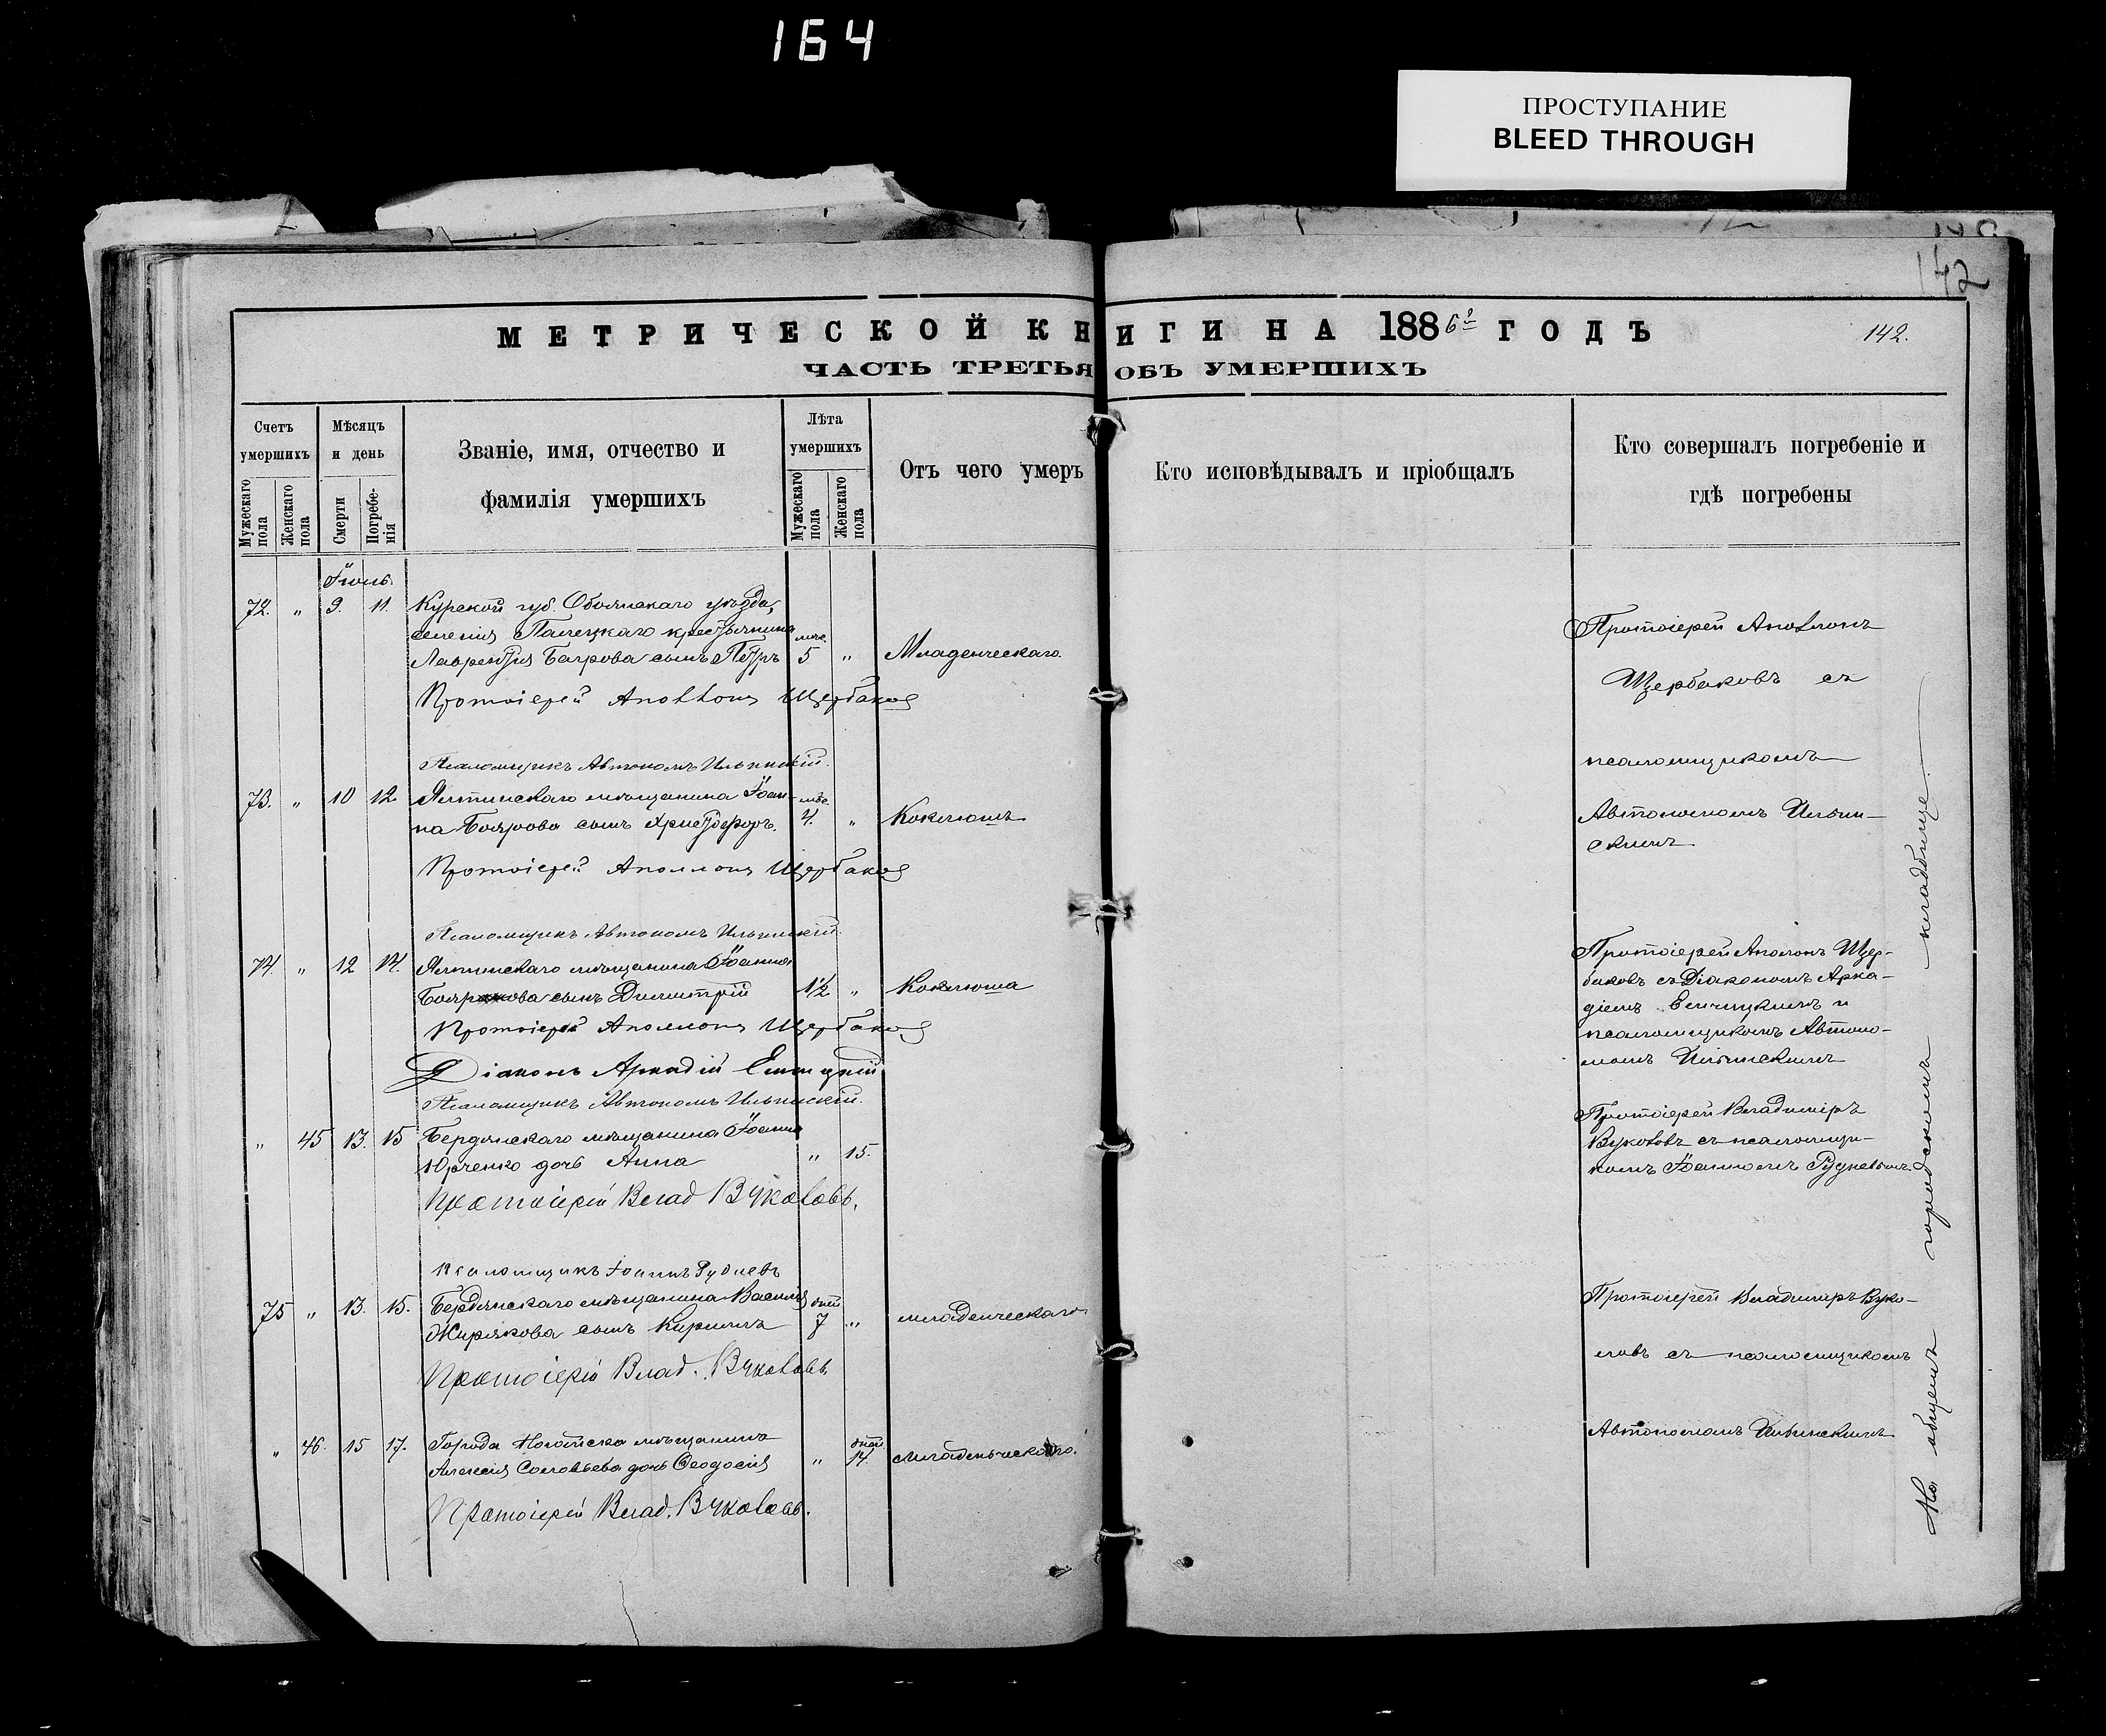 164
ПРОСТУПАНИЕ
BLEED THROUGH
142
МЕТРИЧЕСКОЙ КНИГИ НА 1886й ГОДЪ
142.
ЧАСТЬ ТРЕТЬЯ ОБЪ УМЕРШИХЪ
Счетъ умершихъ
Мужескаго пола
Женскаго пола
Мѣсяцъ и день
Смерти
Погребенія
Званіе, имя, отчество и
фамилія умершихъ
Лѣта умершихъ
Мужескаго пола
Женскаго пола
Отъ чего умеръ
Кто исповѣдывалъ и пріобщалъ
Кто совершалъ погребеніе и
гдѣ погребены
Іюль.
72. " 9. 11. Курской губ. Обоянскаго уѣзда,
селенія крестьянина мѣс.
Лаврентія сынъ Петръ 5 " Младенческаго.
Протоіерей Аполлонъ Щербаковъ
Протоіерей Аполлонъ
Щербаковъ съ
псаломщикомъ
Автономомъ Ильин-
скимъ
Псаломщикъ Автономъ Ильинскій.
73. " 10 12. Ялтинскаго мѣщанина Іоан- мѣс.
на Боярова сынъ Христофоръ. 4. " Коклюшъ
Протоіерей Аполлонъ Щербаковъ
Псаломщикъ Автономъ Ильинскій.
74 " 12 14. Ялтинскаго мѣщанина Іоанна
Боярова сынъ Димитрій 1½ " Коклюша
Протоіерей Аполлонъ Щербаковъ
Діаконъ Аркадій
Псаломщикъ Автономъ Ильинскій.
Протоіерей Аполонъ Щер-
баковъ съ Діакономъ Арка-
діемъ и
псаломщикомъ Автоно-
момъ Ильинскимъ
" 45 13. 15 Бердянскаго мѣщанина Іоанна
Юрченко дочь Анна " 15.
Протоіерей Влад. Вуколовъ.
Псаломщикъ Іоаннъ Рудневъ
Протоіерей Владиміръ
Вуколовъ съ псаломщи-
комъ Іоанномъ Рудневымъ
75 " 13. 15. Бердянскаго мѣщанина Василія дней
Жирякова сынъ Кириллъ 7 " младенческаго
Протоіерей Влад. Вуколовъ
Протоіерей Владиміръ Вуко-
ловъ съ псаломщикомъ
Автономомъ Ильинскимъ
" 46. 15 17. Города Ногайска мѣщанина дней
Алексія Соловьева дочь Ѳеодосія " 14. Младенческаго.
Протоіерей Влад. Вуколовъ.
На общемъ городскомъ кладбище.